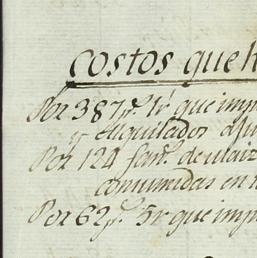 costos que h
Por 387 p.s 1 r que imp
y Alquilador
Por 124 fan.s de maiz
consumidas en
Por 62 p.s 5 r que imp